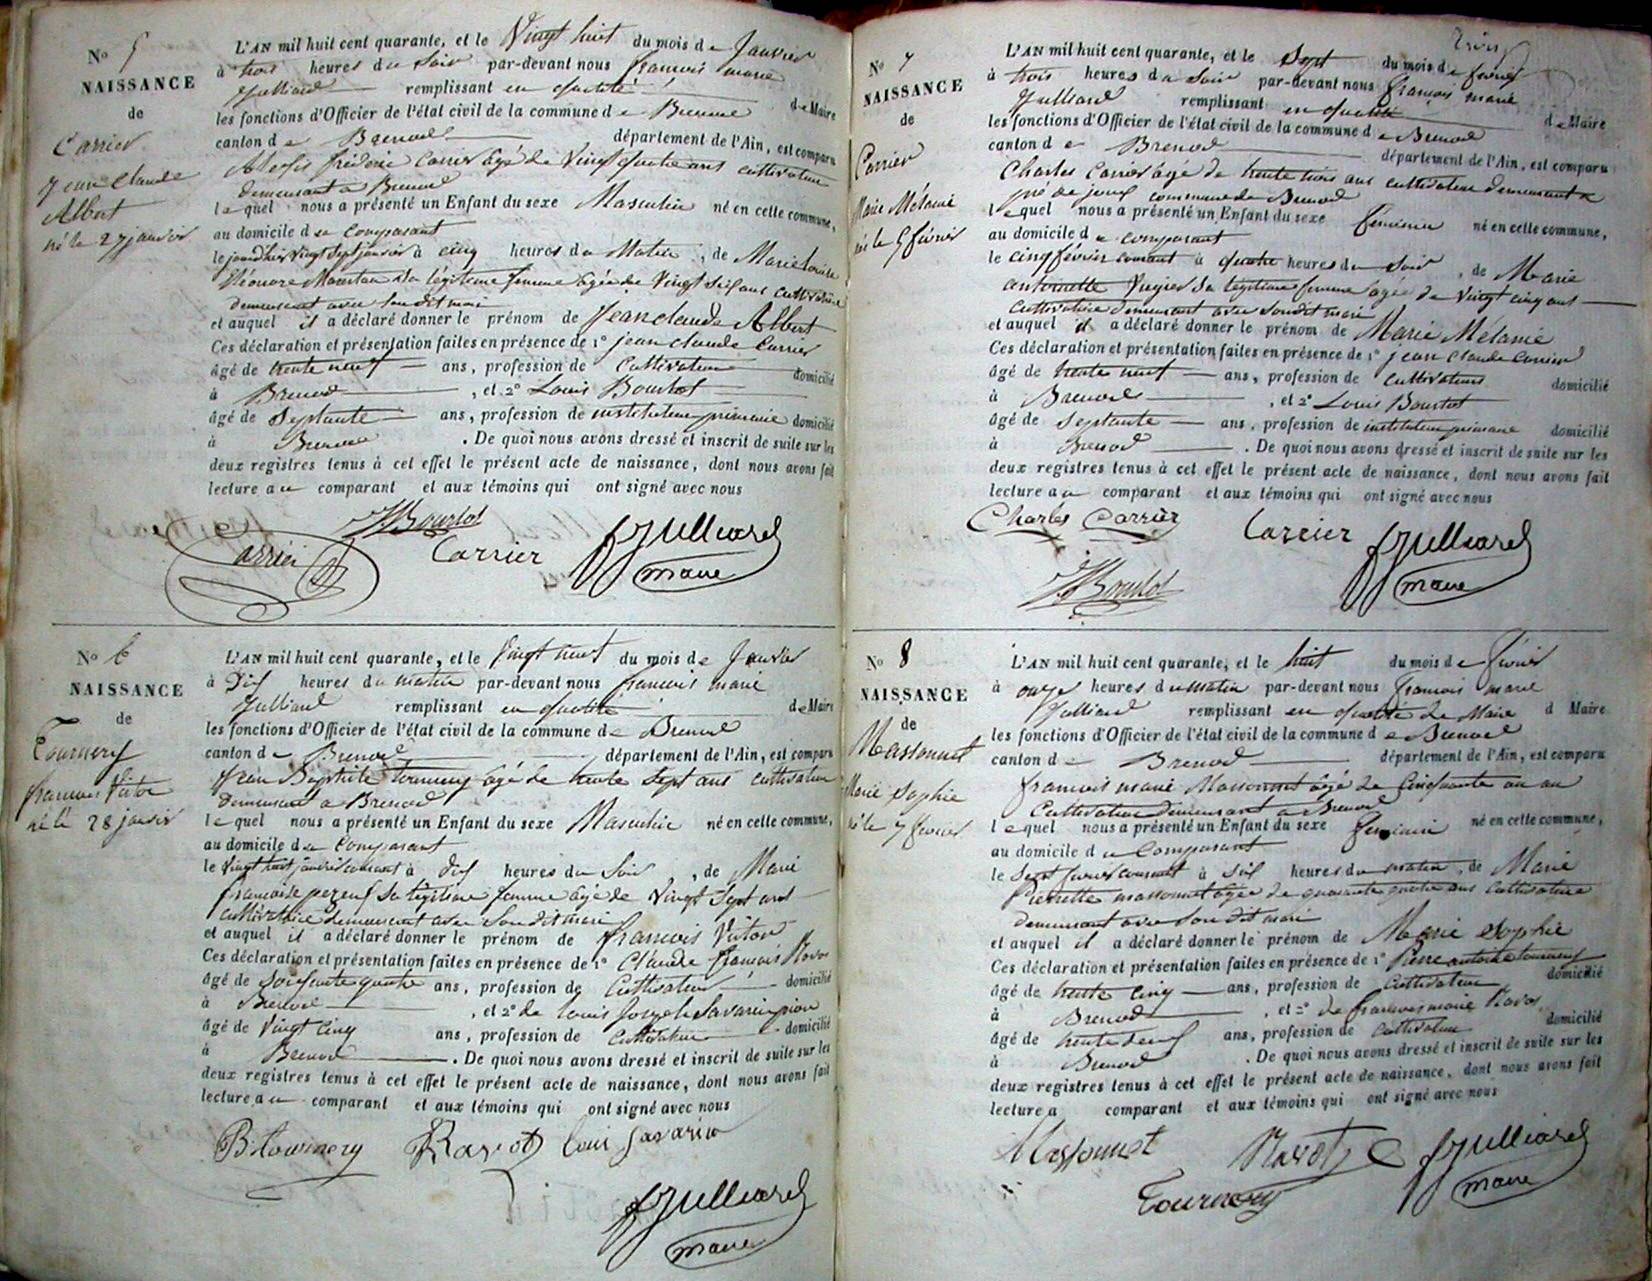 No 5
NAISSANCE
de
Carrier
Jean Claude
Albert
né le 27 janvier
L'AN mil huit cent quarante, et le Vingt huit du mois de Janvier
à trois heures du Soir par-devant nous françois marie
Julliard remplissant en qualité de Maire
les fonctions d'Officier de l'état civil de la commune de Brenod
canton de Brenod département de l'Ain, est comparu
frédéric Carrier âgé de Vingt quatre ans cultivateur
demeurant à Brenod
lequel nous a présenté un Enfant du sexe Masculin né en cette commune,
au domicile du comparant
le jourd'hier Vingt Sept janvier à cinq heures du Matin, de Marie
Eléonore sa légitime femme âgée de Vingt Six ans cultivatrice
demeurant avec son dit mari
et auquel il a déclaré donner le prénom de Jean claude Albert
Ces déclaration et présentation faites en présence de 1° jean claude Carrier
âgé de trente neuf ans, profession de Cultivateur domicilié
à Brenod, et 2° Louis Bourlot
âgé de Septante ans, profession de instituteur primaire domicilié
à Brenod. De quoi nous avons dressé et inscrit de suite sur les
deux registres tenus à cet effet le présent acte de naissance, dont nous avons fait
lecture au comparant et aux témoins qui ont signé avec nous
Bourlot
Carrier Carrier Julliard
maire
No 6
NAISSANCE
de
Tournery
francois Victor
né le 28 janvier
L'AN mil huit cent quarante, et le Vingt neuf du mois de Janvier
à Dix heures du matin par-devant nous francois marie
Julliard remplissant en qualité de Maire
les fonctions d'Officier de l'état civil de la commune de Brenod
canton de Brenod département de l'Ain, est comparu
Jean Baptiste Tournery âgé de trente Sept ans cultivateur
demeurant à Brenod
lequel nous a présenté un Enfant du sexe Masculin né en cette commune,
au domicile du Comparant
le Vingt huit janvier courant à dix heures du Soir, de Marie
francoise pezeux sa légitime femme âgé de Vingt Sept ans
cultivatrice demeurant avec Son dit mari
et auquel il a déclaré donner le prénom de francois Victor
Ces déclaration et présentation faites en présence de 1° Claude francois Ravot
âgé de Soixante quatre ans, profession de Cultivateur domicilié
à Brenod, et 2° de Louis Joseph Savarin
âgé de Vingt cinq ans, profession de Cultivateur domicilié
à Brenod. De quoi nous avons dressé et inscrit de suite sur les
deux registres tenus à cet effet le présent acte de naissance, dont nous avons fait
lecture au comparant et aux témoins qui ont signé avec nous
B. tournery Ravot Louis Savarin
Julliard
maire
trois
No 7
NAISSANCE
de
Carrier
Marie Mélanie
née le 5 février
L'AN mil huit cent quarante, et le Sept du mois de février
à trois heures du Soir par-devant nous françois marie
Julliard remplissant en qualité de Maire
les fonctions d'Officier de l'état civil de la commune de Brenod
canton de Brenod département de l'Ain, est comparu
Charles Carrier âgé de trente trois ans cultivateur demeurant a
pré de joux commune de Brenod
lequel nous a présenté un Enfant du sexe féminin né en cette commune,
au domicile du comparant
le cinq février courant à quatre heures du Soir, de Marie
antoinette sa légitime femme âgée de Vingt cinq ans
Cultivatrice demeurant avec son dit mari
et auquel il a déclaré donner le prénom de Marie Mélanie
Ces déclaration et présentation faites en présence de 1° jean Claude Carrier
âgé de trente neuf ans, profession de cultivateur domicilié
à Brenod, et 2° Louis Bourlot
âgé de Septante ans, profession de instituteur primaire domicilié
à Brenod. De quoi nous avons dressé et inscrit de suite sur les
deux registres tenus à cet effet le présent acte de naissance, dont nous avons fait
lecture au comparant et aux témoins qui ont signé avec nous
Charles Carrier Carrier Julliard
maire
Bourlot
No 8
NAISSANCE
de
Massonnet
Marie Sophie
né le 7 février
L'AN mil huit cent quarante, et le huit du mois de février
à onze heures du matin par-devant nous francois marie
Julliard remplissant en qualité de Maire d Maire
les fonctions d'Officier de l'état civil de la commune de Brenod
canton de Brenod département de l'Ain, est comparu
francois marie Massonnet âgé de Cinquante un an
Cultivateur demeurant à Brenod
lequel nous a présenté un Enfant du sexe féminin né en cette commune,
au domicile du Comparant
le Sept février courant à Six heures du matin, de Marie
Pierrette massonnet âgée de quarante quatre ans Cultivatrice
demeurant avec Son dit mari
et auquel il a déclaré donner le prénom de Marie Sophie
Ces déclaration et présentation faites en présence de 1° Pierre antoine tournery
âgé de trente cinq ans, profession de Cultivateur domicilié
à Brenod, et 2° de francois marie Ravot
âgé de trente deux ans, profession de Cultivateur domicilié
à Brenod. De quoi nous avons dressé et inscrit de suite sur les
deux registres tenus à cet effet le présent acte de naissance, dont nous avons fait
lecture a comparant et aux témoins qui ont signé avec nous
Massonnet Ravot Julliard
maire
Tournery